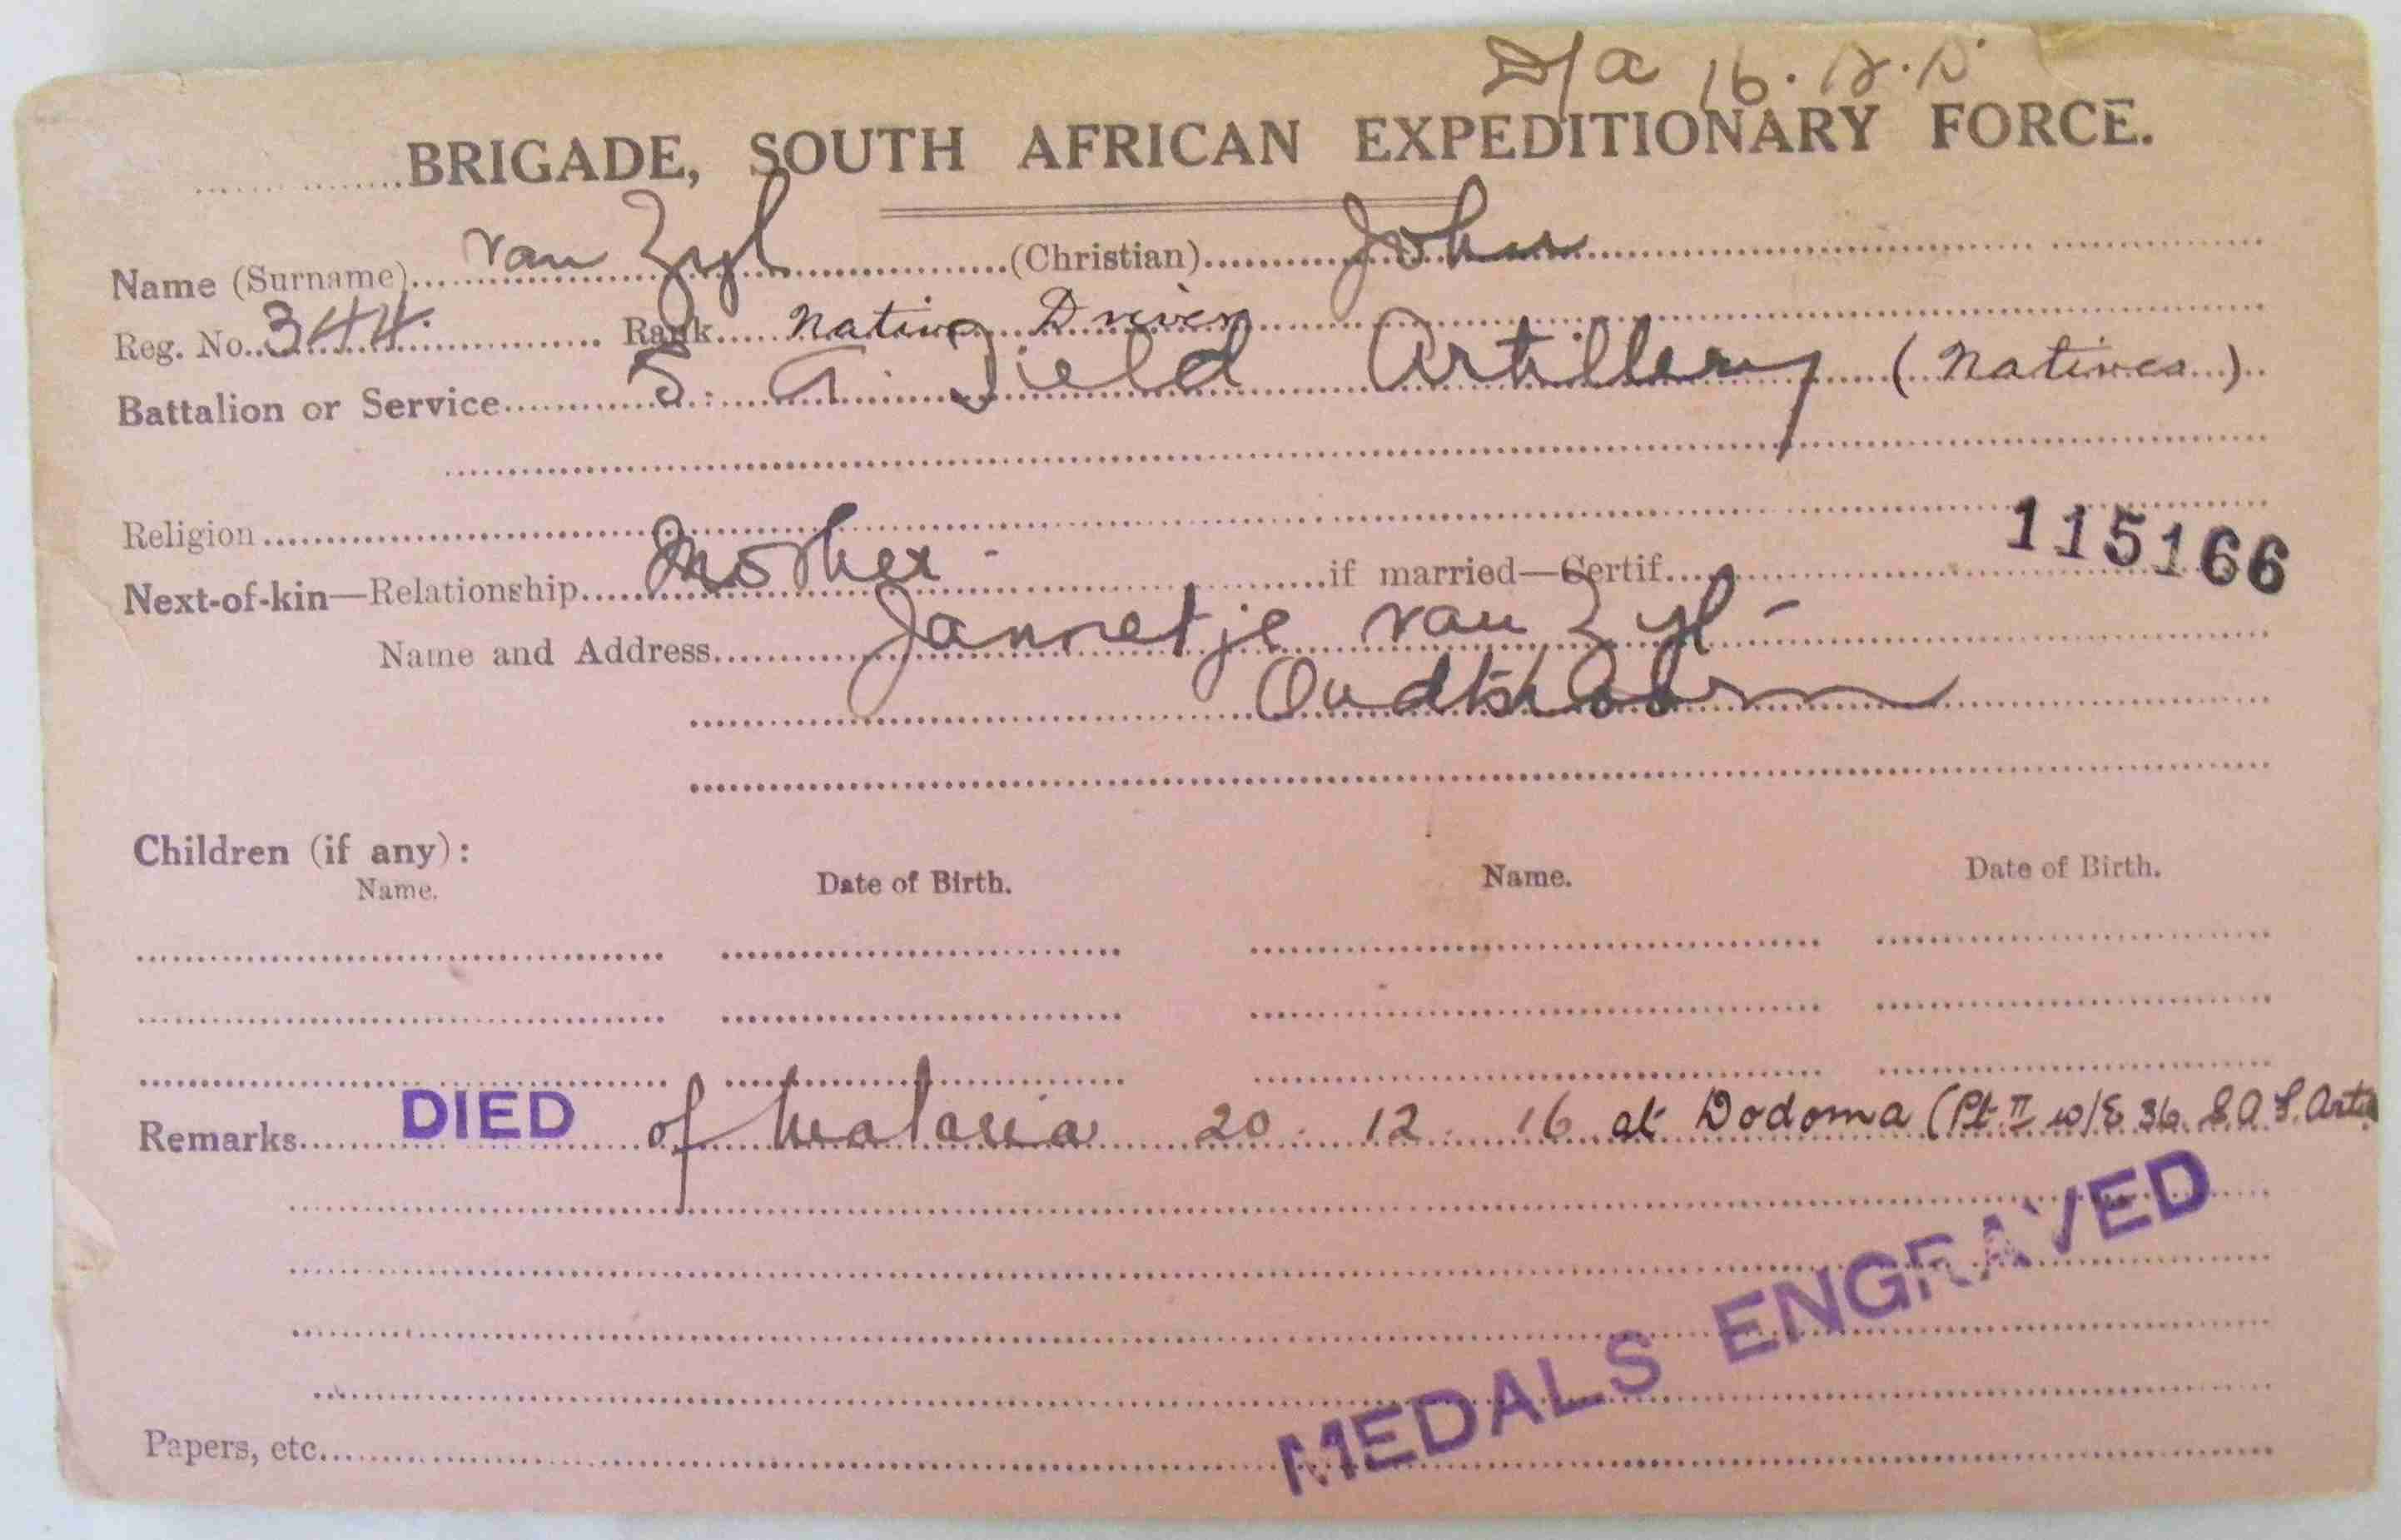 D/a 16.
BRIGADE, SOUTH AFRICAN EXPEDITIONARY FORCE.
Name (Surname) van Zyl (Christian) John
Reg. No. 344. Rank Native Driver
Battalion or Service S. A. Field Artillery (Natives)
Religion
115166
Next-of-kin—Relationship Mother - if married—Certif.
Name and Address Jannetje van Zyl -
Oudtshoorn
Children (if any):
Name. Date of Birth. Name. Date of Birth.
Remarks DIED of Malaria 20. 12. 16 at Dodoma (Pt II w/E 36. S.A.F. Art
MEDALS ENGRAVED
Papers, etc.